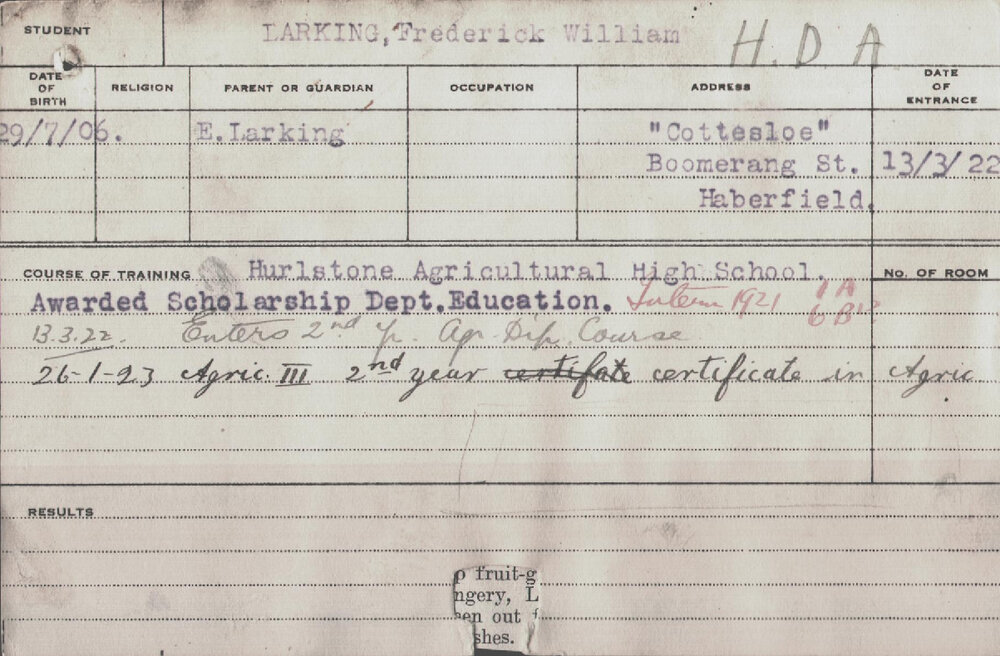 STUDENT LARKING, Frederick William H.D A
DATE OF BIRTH RELIGION PARENT OR GUARDIAN OCCUPATION ADDRESS DATE OF ENTRANCE
29/7/06. E.Larking "Cottesloe"
Boomerang St. 13/3/22
Haberfield.
COURSE OF TRAINING Hurlstone Agricultural High School. No. OF ROOM
Awarded Scholarship Dept.Education. Interm 1921 1A
6B
13.3.22. Enters 2nd yr. Agr. Dip. Course
26-1-23 Agric. III 2nd year certifate certificate in Agric
RESULTS
p fruit-g
ngery, L
een out f
shes.